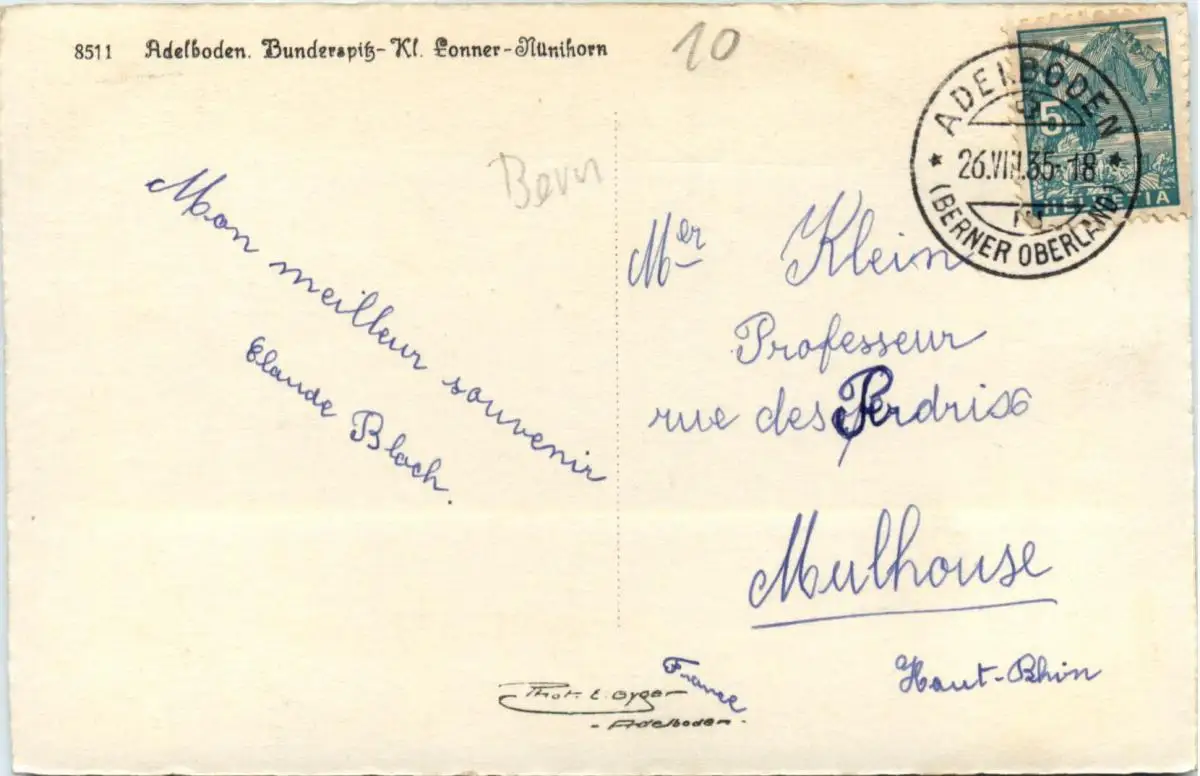 8511 Adelboden. Bunderspitz-Kl. Lonner-Nünihorn
10
Bern
Mon meilleur souvenir
Claude Bloch.
ADELBODEN
26.VIII.35-18
(BERNER OBERLAND)
5
HELVETIA
Mer Klein
Professeur
rue des Perdrix 6
Mulhouse
Haut-Rhin
France
Phot. E. Gyger
- Adelboden -